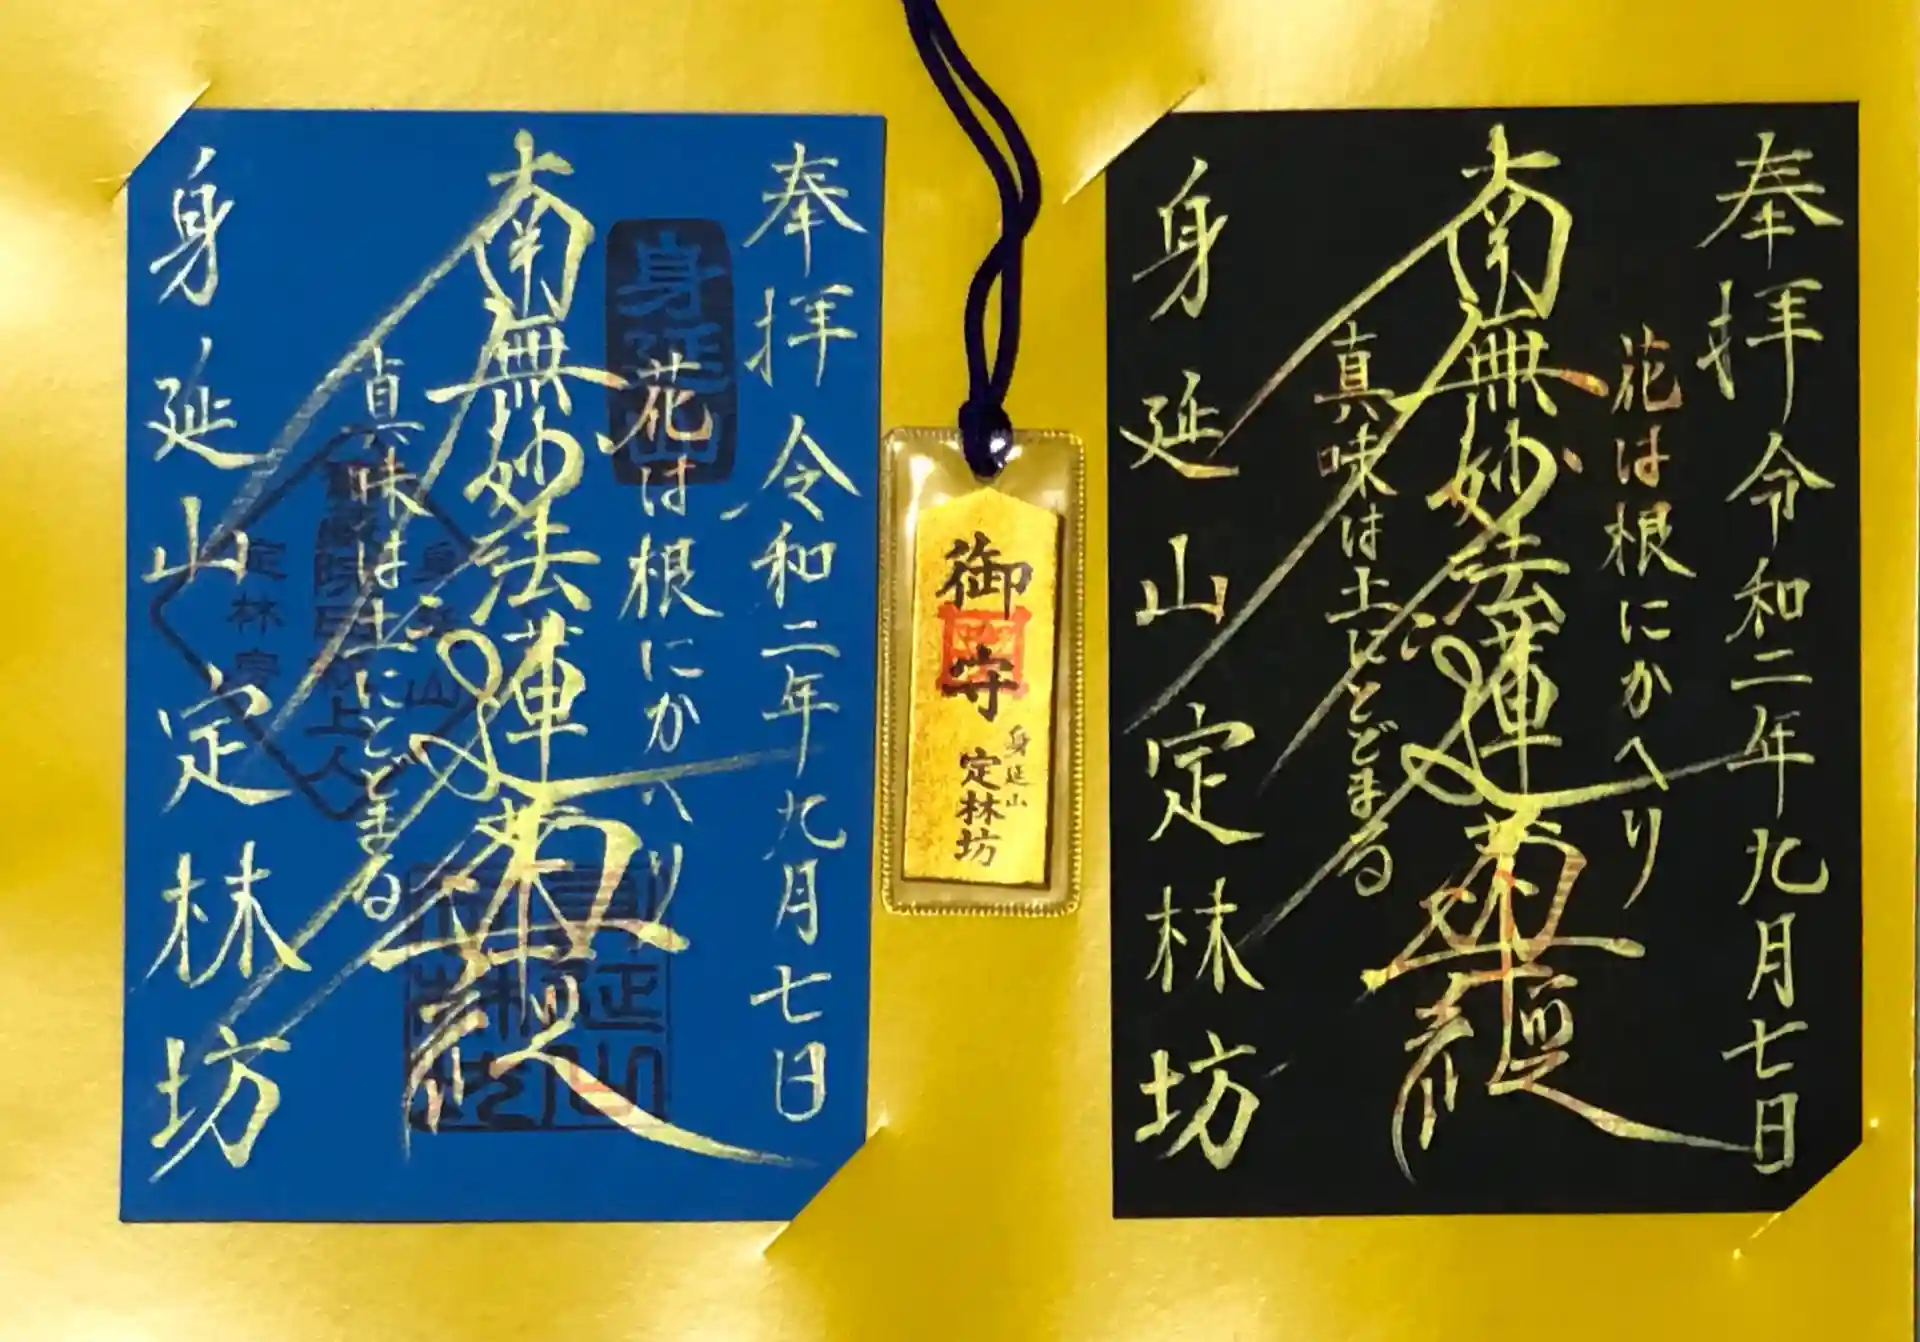 奉拝 令和二年九月七日
身延山
花は根にかへり
南無妙法蓮華経
真味は土にとどまる
身延山
定林坊
身延山定林坊
御守
身延山
定林坊
奉拝 令和二年九月七日
花は根にかへり
南無妙法蓮華経
真味は土にとどまる
身延山定林坊